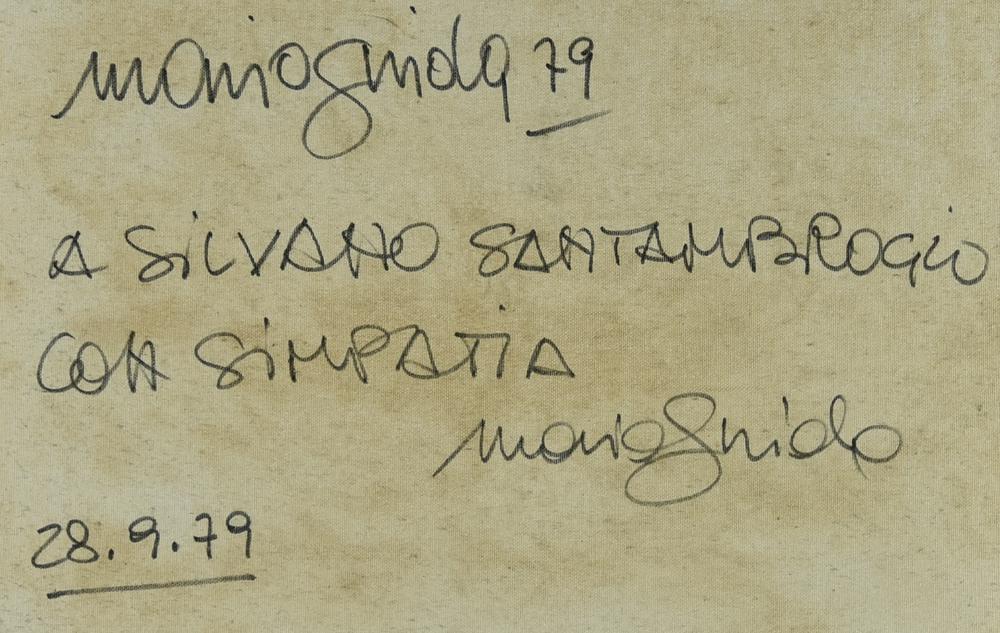 marioguida 79
A SiLVANO SANTAMBROGiO
CON SiMPATiA
marioguida
28.9.79